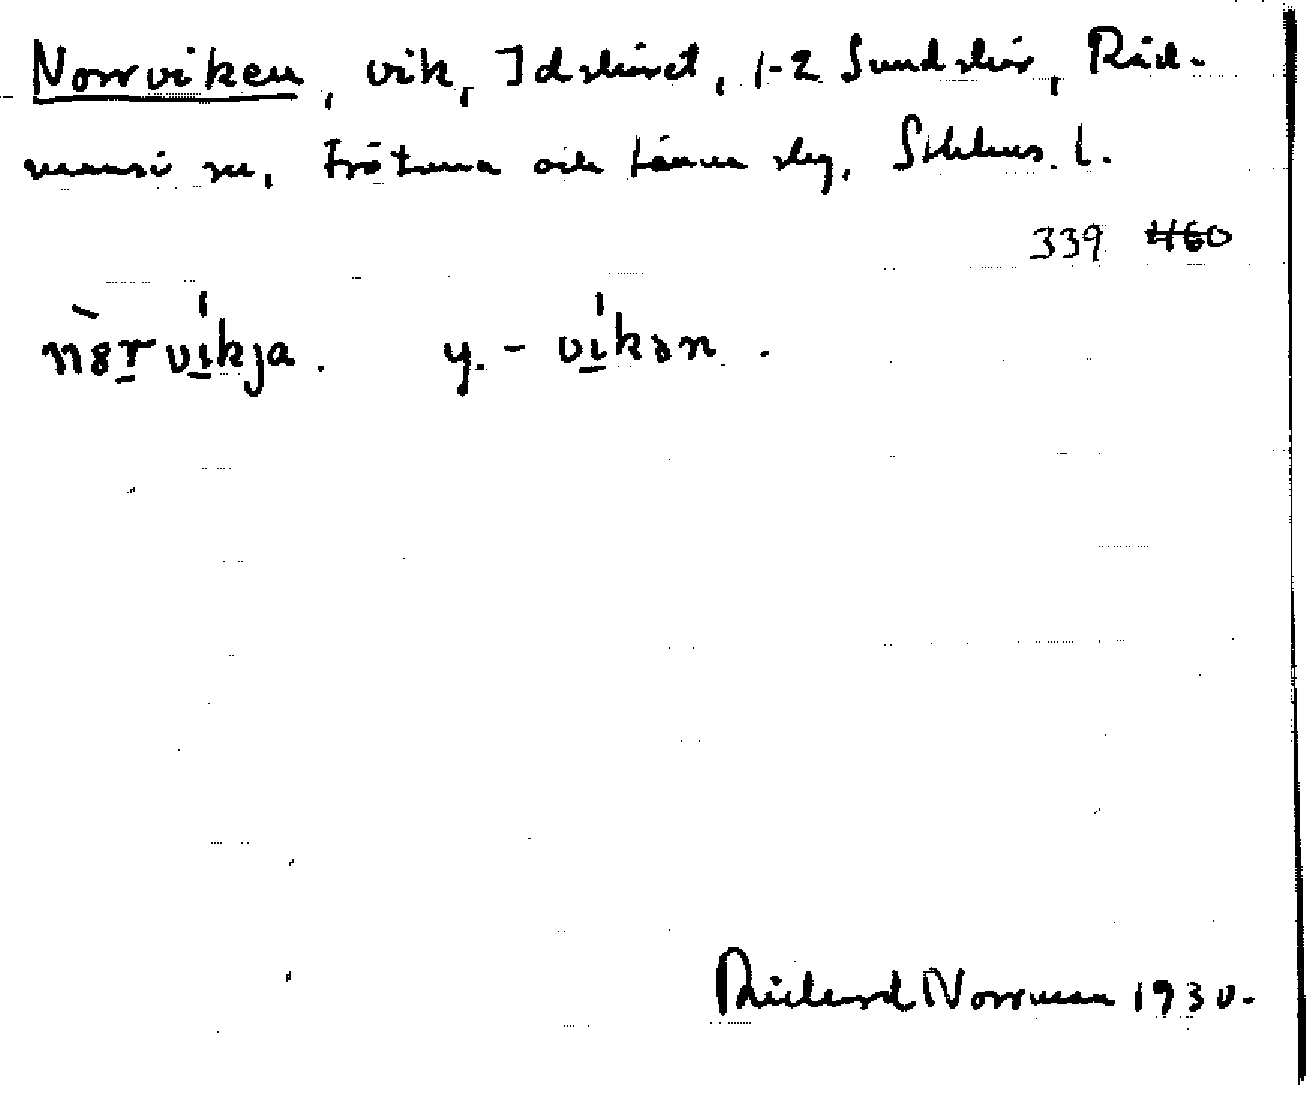 Norrviken, vik, Idskäret, 1-2 Sundskär, Råd-
mansö sn, Frötuna och Länna skg, Sthlms. l.
339 460
nȯrvíkja. y. - víkən.
Richard Norrman 1930.